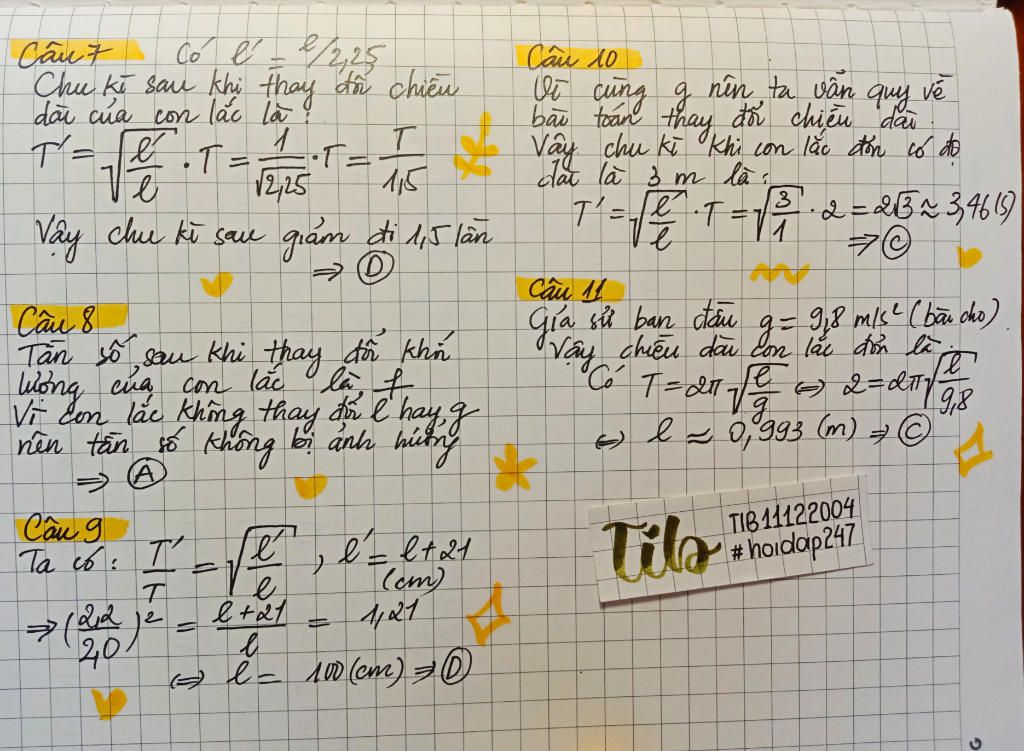 Câu 7 Có l' = l/2,25
Chu kì sau khi thay đổi chiều
dài của con lắc là:
T' = √(l'/l) · T = 1/√2,25 · T = T/1,5
Vậy chu kì sau giảm đi 1,5 lần
⇒ D
Câu 8
Tần số sau khi thay đổi khối
lượng của con lắc là f
Vì con lắc không thay đổi l hay g
nên tần số không bị ảnh hưởng
⇒ A
Câu 9
Ta có: T'/T = √(l'/l) , l' = l + 21
(cm)
⇒ (2,2/2,0)² = (l + 21)/l = 1,21
⇔ l = 100 (cm) ⇒ D
Câu 10
Vì cùng g nên ta vẫn quy về
bài toán thay đổi chiều dài.
Vậy chu kì khi con lắc đơn có độ
dài là 3 m là:
T' = √(l'/l) · T = √(3/1) · 2 = 2√3 ≈ 3,46 (s)
⇒ C
Câu 11
Giả sử ban đầu g = 9,8 m/s² (bài cho)
Vậy chiều dài con lắc đơn là:
Có T = 2π√(l/g) ⇔ 2 = 2π√(l/9,8)
⇔ l ≈ 0,993 (m) ⇒ C
Tib
TIB11122004
#hoidap247